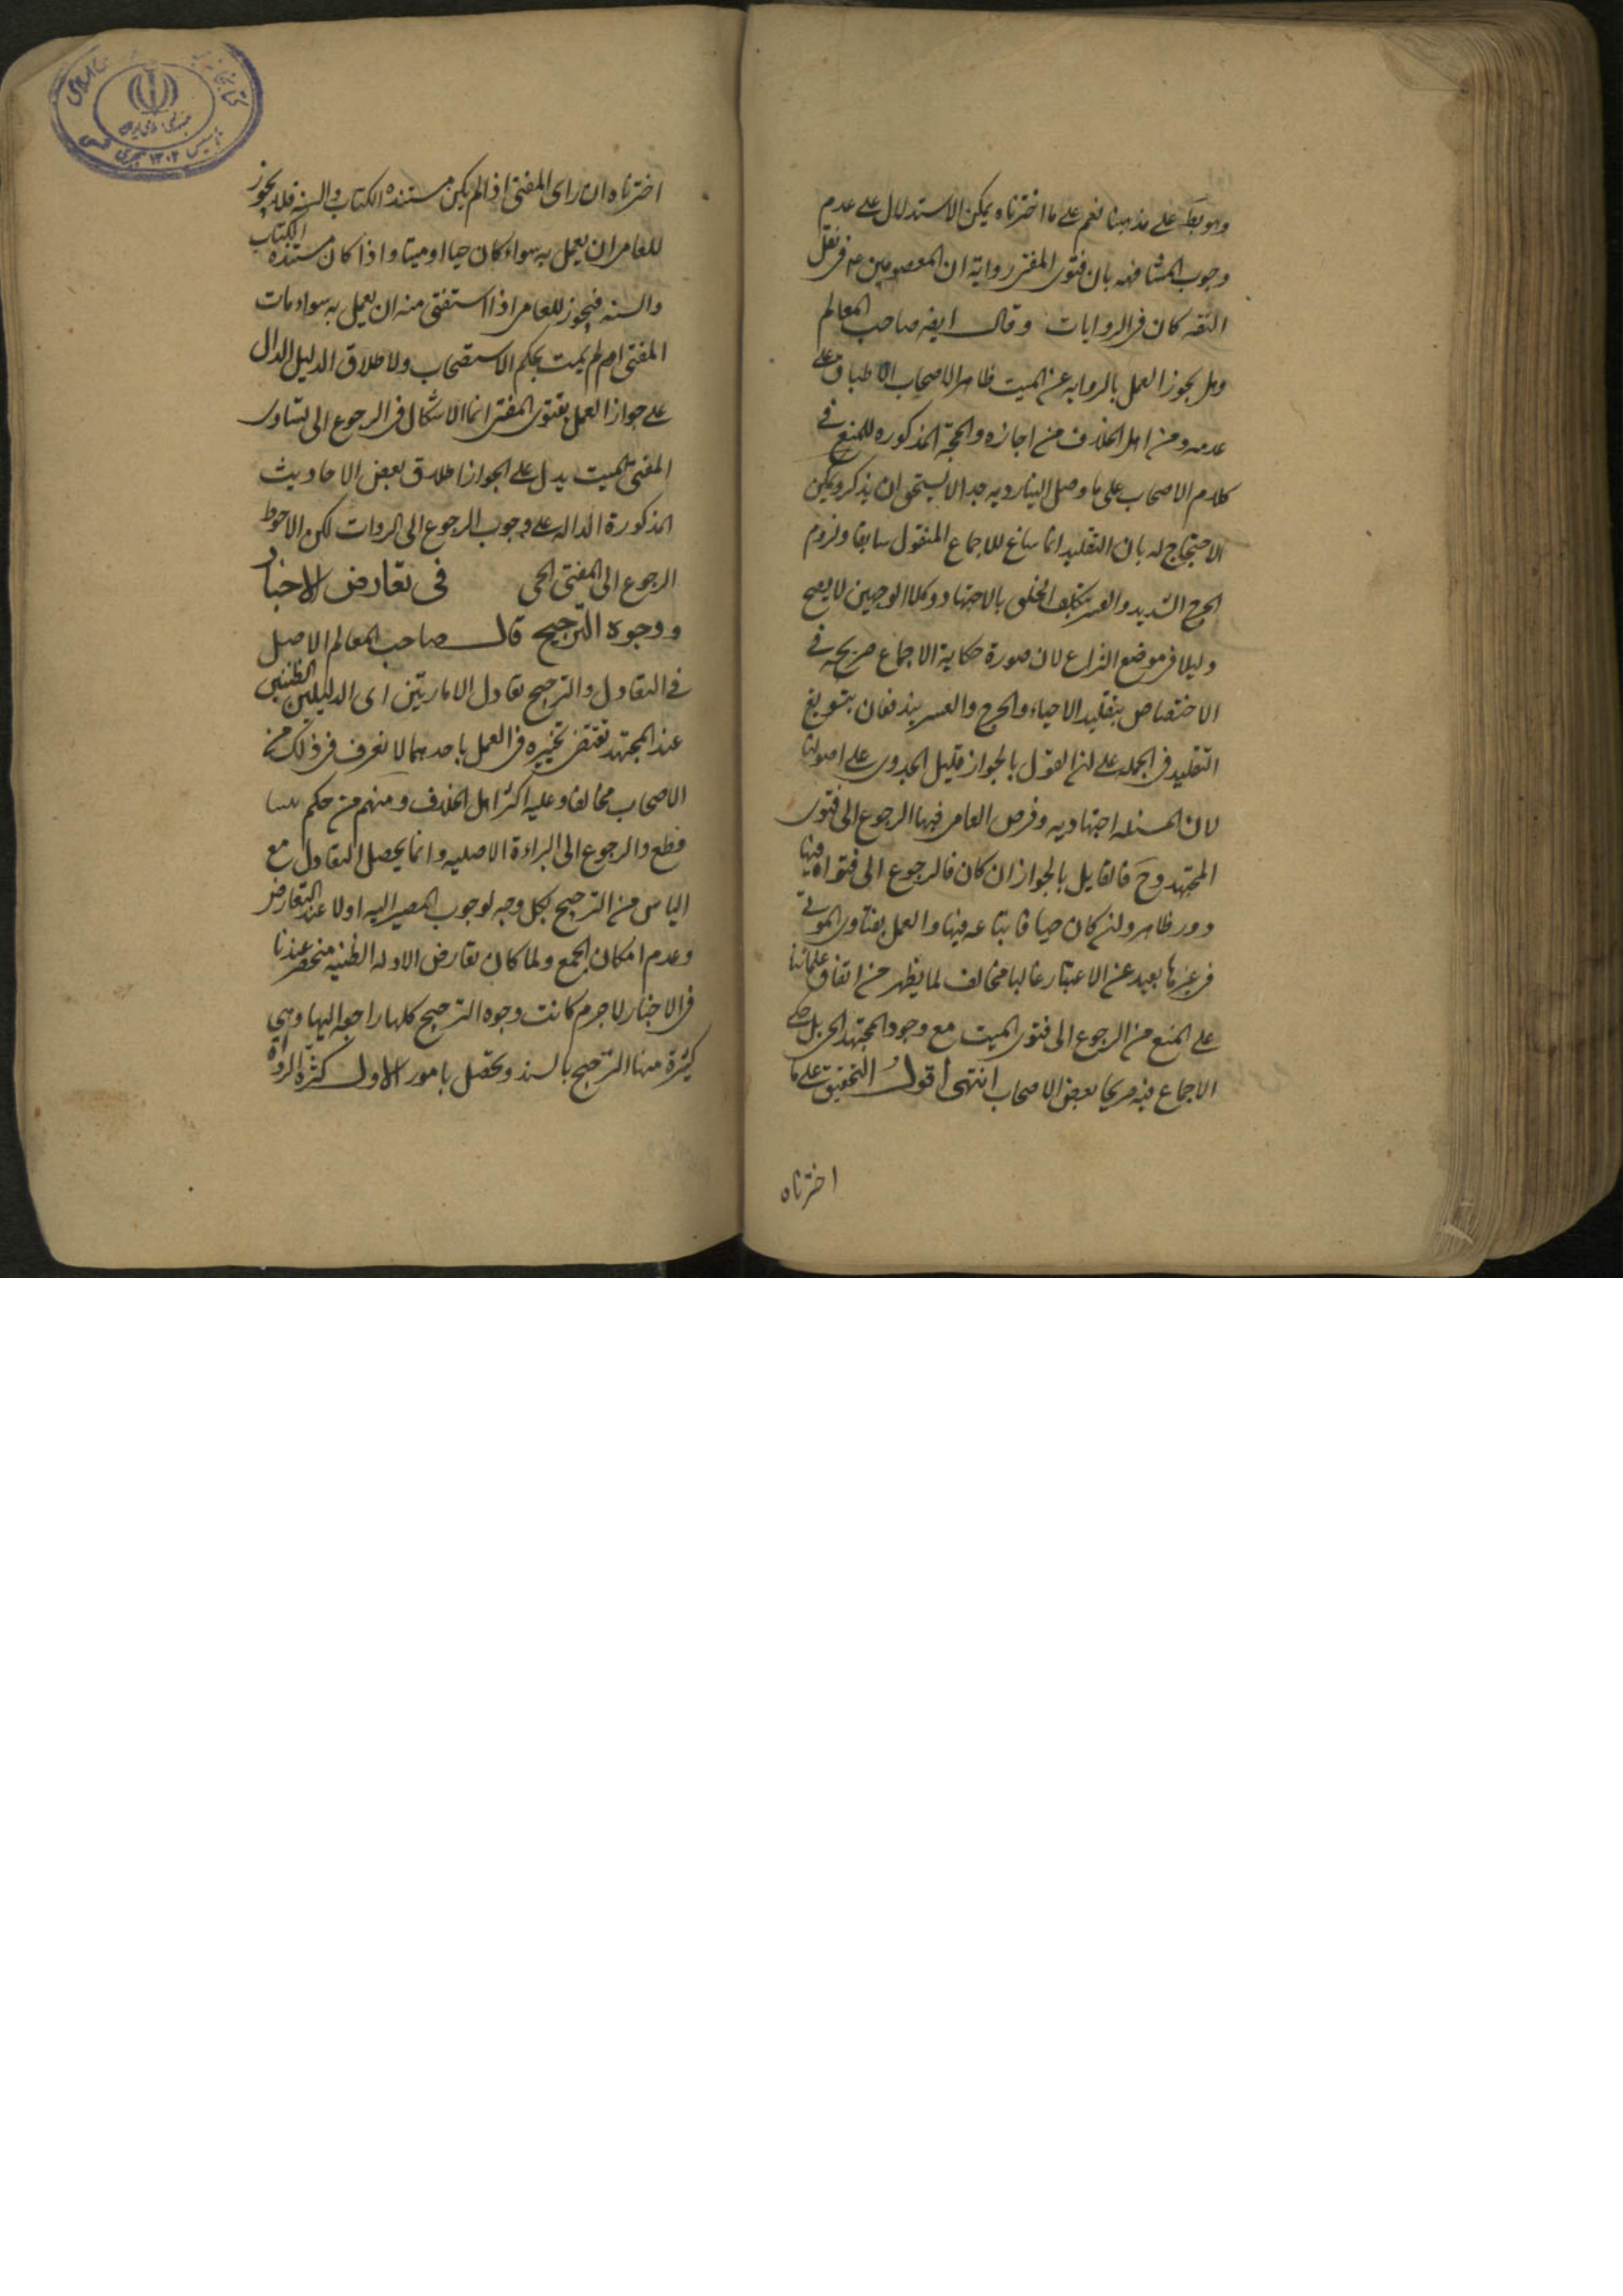 وهو بط على مذهبنا نعم على ما اخترناه يمكن الاستدلال على عدم
وجوب المشافهه بان فتوى المفتى رواية ان المعصومين ع فى نقل
الثقه كان فى الروايات وقال ايضه صاحب المعالم
وهل يجوز العمل بالروايه عن الميت ظاهر الاصحاب الاطباق على
عدمه ومن اهل الخلاف من اجازه والحجة المذكوره للمنع فى
كلام الاصحاب على ما وصل الينا رديه جدا لا يستحق ان يذكر ويمكن
الاحتجاج له بان التقليد انما ساغ للاجماع المنقول سابقا ولزوم
الحرج الشديد والعسر بتكليف الخلق بالاجتهاد وكلا الوجهين لا يصح
دليلا فى موضع النزاع لان صورة حكاية الاجماع صريحه فى
الاختصاص بتقليد الاحياء والحرج والعسر يندفعان بتسويغ
التقليد فى الجمله على ان القول بالجواز قليل الجدوى على اصولنا
لان المسئله اجتهاديه وفرض العامى فيها الرجوع الى فتوى
المجتهد وح فالقايل بالجواز ان كان فالرجوع الى فتواه فيها
دور ظاهر وان كان حيا فاتباعه فيها والعمل بفتاوى الموتى
فى غيرها بعيد عن الاعتبار غالبا مخالف لما يظهر من اتفاق علمائنا
على المنع من الرجوع الى فتوى الميت مع وجود المجتهد الحى بل حكى
الاجماع فيه صريحا بعض الاصحاب انتهى اقول التحقيق على ما
اخترناه
اخترناه ان راى المفتى اذا لم يكن مستنده الكتاب والسنه فلا يجوز
للعامى ان يعمل به سواء كان حيا او ميتا واذا كان مستنده الكتاب
والسنه فيجوز للعامى اذا استفتى منه ان يعمل به سواء مات
المفتى ام لم يمت بحكم الاستصحاب ولاطلاق الدليل الدال
على جواز العمل بفتوى المفتى انما الاشكال فى الرجوع الى فتاوى
المفتى الميت يدل على الجواز اطلاق بعض الاحاديث
المذكورة الداله على وجوب الرجوع الى الروات لكن الاحوط
الرجوع الى المفتى الحى فى تعارض الاخبار
ووجوه الترجيح قال صاحب المعالم الاصل
فى التعادل والترجيح تعادل الامارتين اى الدليلين الظنيين
عند المجتهد تقتضى تخييره فى العمل باحدهما لا نعرف فى ذلك من
الاصحاب مخالفا وعليه اكثر اهل الخلاف ومنهم من حكم
والرجوع الى البراءة الاصليه وانما يحصل التعادل مع
الياس من الترجيح بكل وجه لوجوب المصير اليه اولا عند التعارض
وعدم امكان الجمع ولما كان تعارض الادله الظنيه منحصر عندنا
فى الاخبار لا جرم كانت وجوه الترجيح كلها راجعه اليها وهي
كثيرة منها الترجيح بالسند وتحصل بامور الاول كثرة الرواة